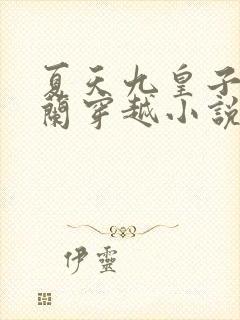 夏天九皇子
蘭穿越小說
伊靈